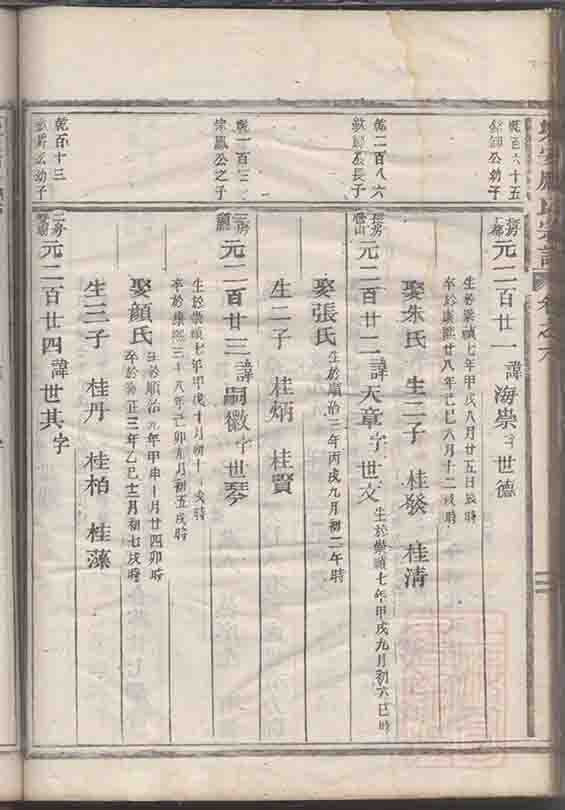 卷之六
乾百六十五
公幼子
元二百廿一諱海崇字世德
生於崇禎七年甲戌八月廿五日辰時
卒於康熙廿八年己巳六月十二戌時
娶朱氏 生二子 桂發 桂清
乾二百八六
長子
長房
元二百廿二諱天章字世文
生於崇禎七年甲戌九月初六巳時
娶張氏
生於順治三年丙戌九月初二午時
生二子 桂炳 桂賢
乾一百三
宗鳳公之子
元二百廿三諱嗣徽字世琴
生於崇禎七年甲戌十月初十亥時
卒於康熙三十八年己卯九月初五戌時
娶顏氏
生於順治元年甲申十月廿四卯時
卒於雍正三年乙巳十二月初七戌時
生三子 桂丹 桂柏 桂藻
乾百十三
幼子
二房
元二百廿四諱世其字